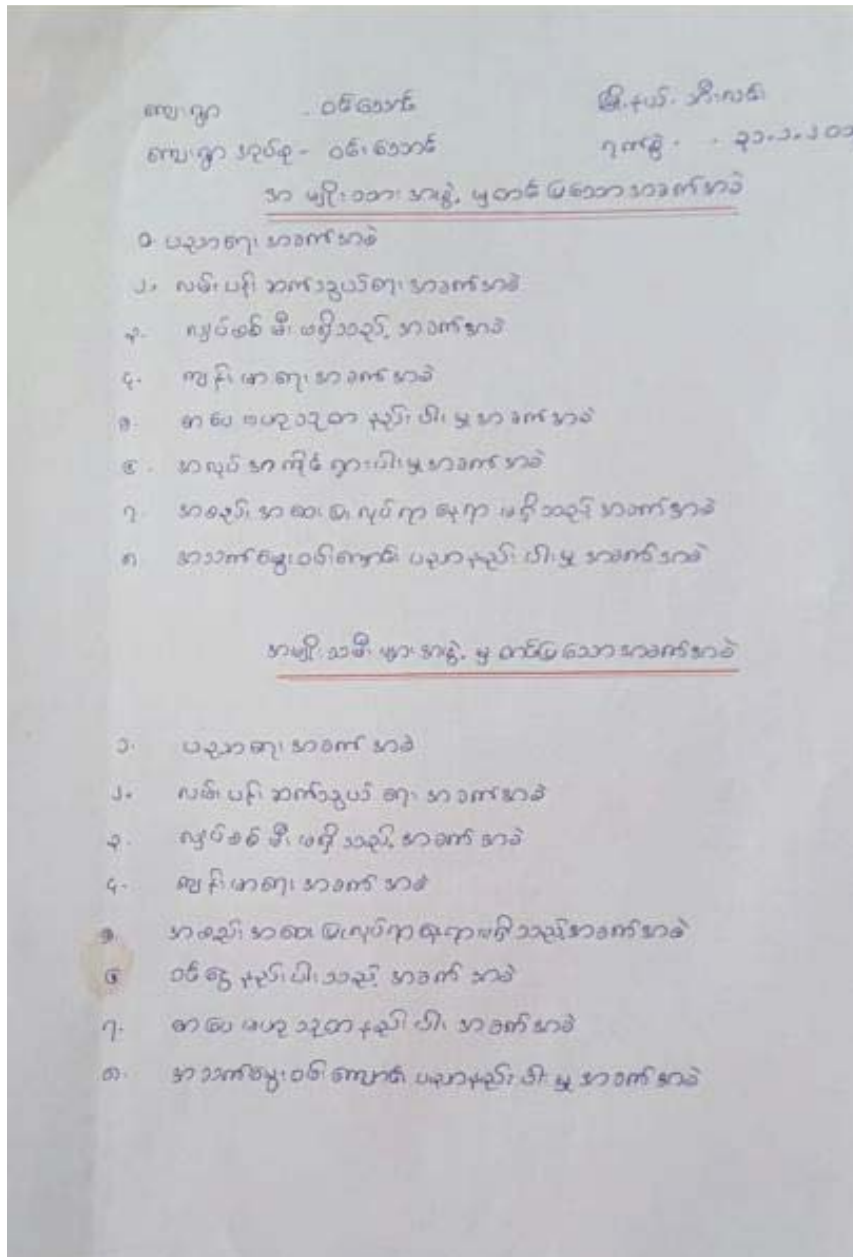 ကျေးရွာ - ဝင်းသောင် မြို့နယ် - ဘီးလင်း
ကျေးရွာအုပ်စု - ဝင်းသောင် ရက်စွဲ -
အမျိုးသားအဖွဲ့မှတင်ပြသောအခက်အခဲ
၁. ပညာရေးအခက်အခဲ
၂. လမ်းပန်းဆက်သွယ်ရေးအခက်အခဲ
၃. လျှပ်စစ်မီးမရှိသည့်အခက်အခဲ
၄. ကျန်းမာရေးအခက်အခဲ
၅. စာပေဗဟုသုတနည်းပါးမှုအခက်အခဲ
၆. အလုပ်အကိုင်ရှားပါးမှုအခက်အခဲ
၇. အစည်းအဝေးပြုလုပ်ရာနေရာမရှိသည့်အခက်အခဲ
၈. အသက်မွေးဝမ်းကျောင်းပညာနည်းပါးမှုအခက်အခဲ
အမျိုးသမီးများအဖွဲ့မှတင်ပြသောအခက်အခဲ
၁. ပညာရေးအခက်အခဲ
၂. လမ်းပန်းဆက်သွယ်ရေးအခက်အခဲ
၃. လျှပ်စစ်မီးမရှိသည့်အခက်အခဲ
၄. ကျန်းမာရေးအခက်အခဲ
၅. အစည်းအဝေးပြုလုပ်ရာနေရာမရှိသည့်အခက်အခဲ
၆. ဝင်ငွေနည်းပါးသည့်အခက်အခဲ
၇. စာပေဗဟုသုတနည်းပါးအခက်အခဲ
၈. အသက်မွေးဝမ်းကျောင်းပညာနည်းပါးမှုအခက်အခဲ